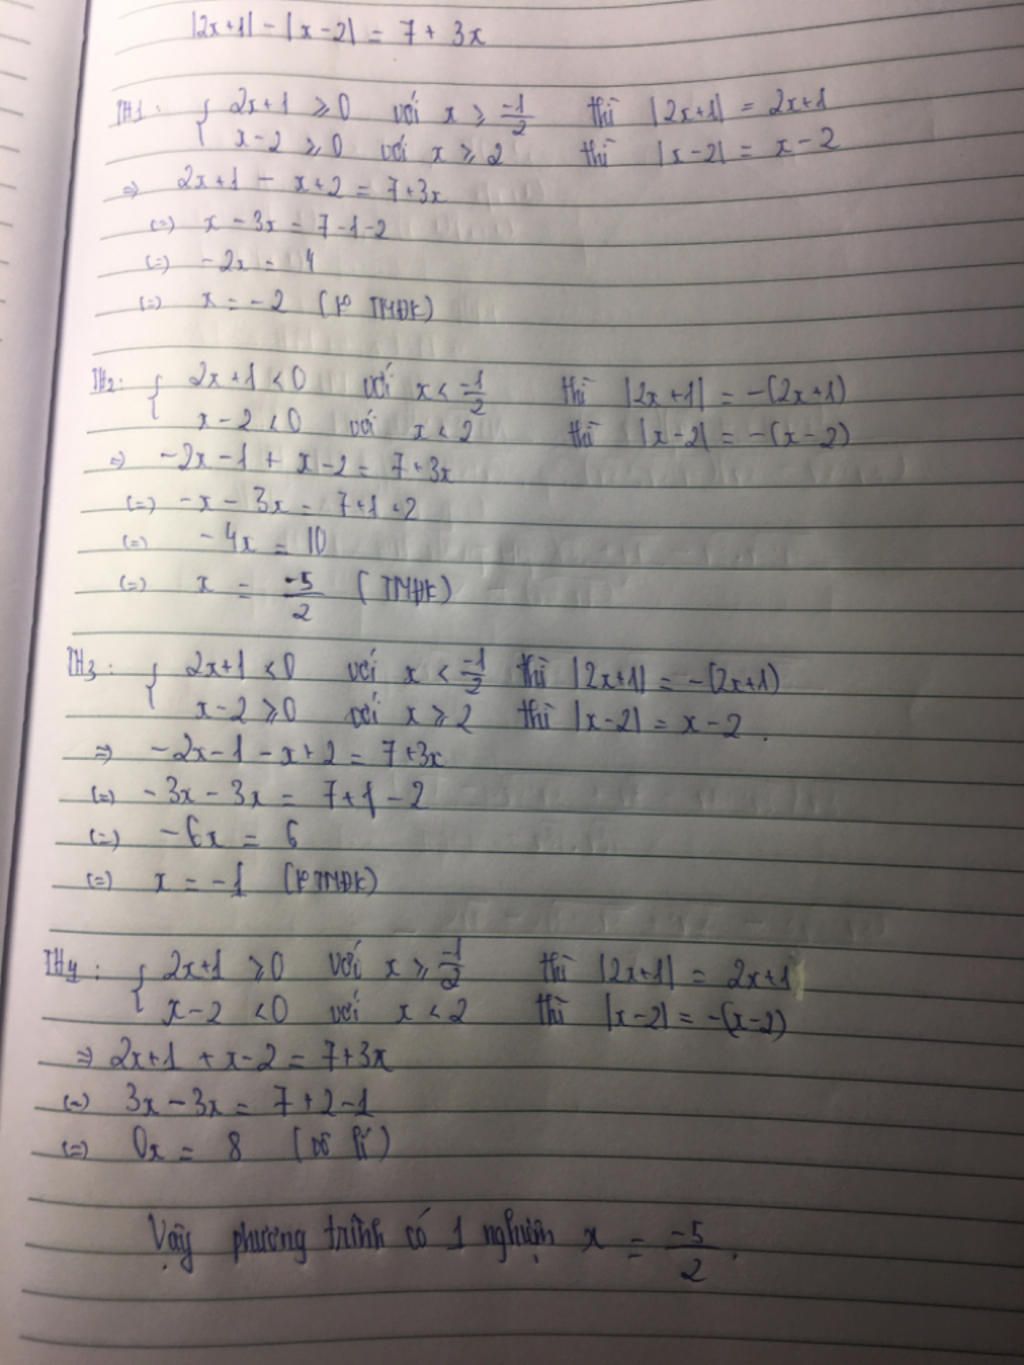 |2x+1| - |x-2| = 7 + 3x
TH1: { 2x+1 ⩾ 0 với x ⩾ -1/2 thì |2x+1| = 2x+1
x-2 ⩾ 0 với x ⩾ 2 thì |x-2| = x-2
=> 2x+1 - x+2 = 7+3x
(=) x - 3x = 7-1-2
(=) -2x = 4
(=) x = -2 (K° TMĐK)
TH2: { 2x+1 < 0 với x < -1/2 thì |2x+1| = -(2x+1)
x-2 < 0 với x < 2 thì |x-2| = -(x-2)
=> -2x-1 + x-2 = 7+3x
(=) -x - 3x = 7+1+2
(=) -4x = 10
(=) x = -5/2 (TMĐK)
TH3: { 2x+1 < 0 với x < -1/2 thì |2x+1| = -(2x+1)
x-2 ⩾ 0 với x ⩾ 2 thì |x-2| = x-2.
=> -2x-1 - x+2 = 7+3x
(=) -3x - 3x = 7+1-2
(=) -6x = 6
(=) x = -1 (K° TMĐK)
TH4: { 2x+1 ⩾ 0 với x ⩾ -1/2 thì |2x+1| = 2x+1
x-2 < 0 với x < 2 thì |x-2| = -(x-2)
=> 2x+1 + x-2 = 7+3x
(=) 3x-3x = 7+2-1
(=) 0x = 8 (vô lí)
Vậy phương trình có 1 nghiệm x = -5/2.